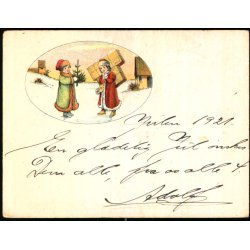 Julen 1921.
En glædelig Jul ønskes
Dem alle, fra os alle 4
Adolf